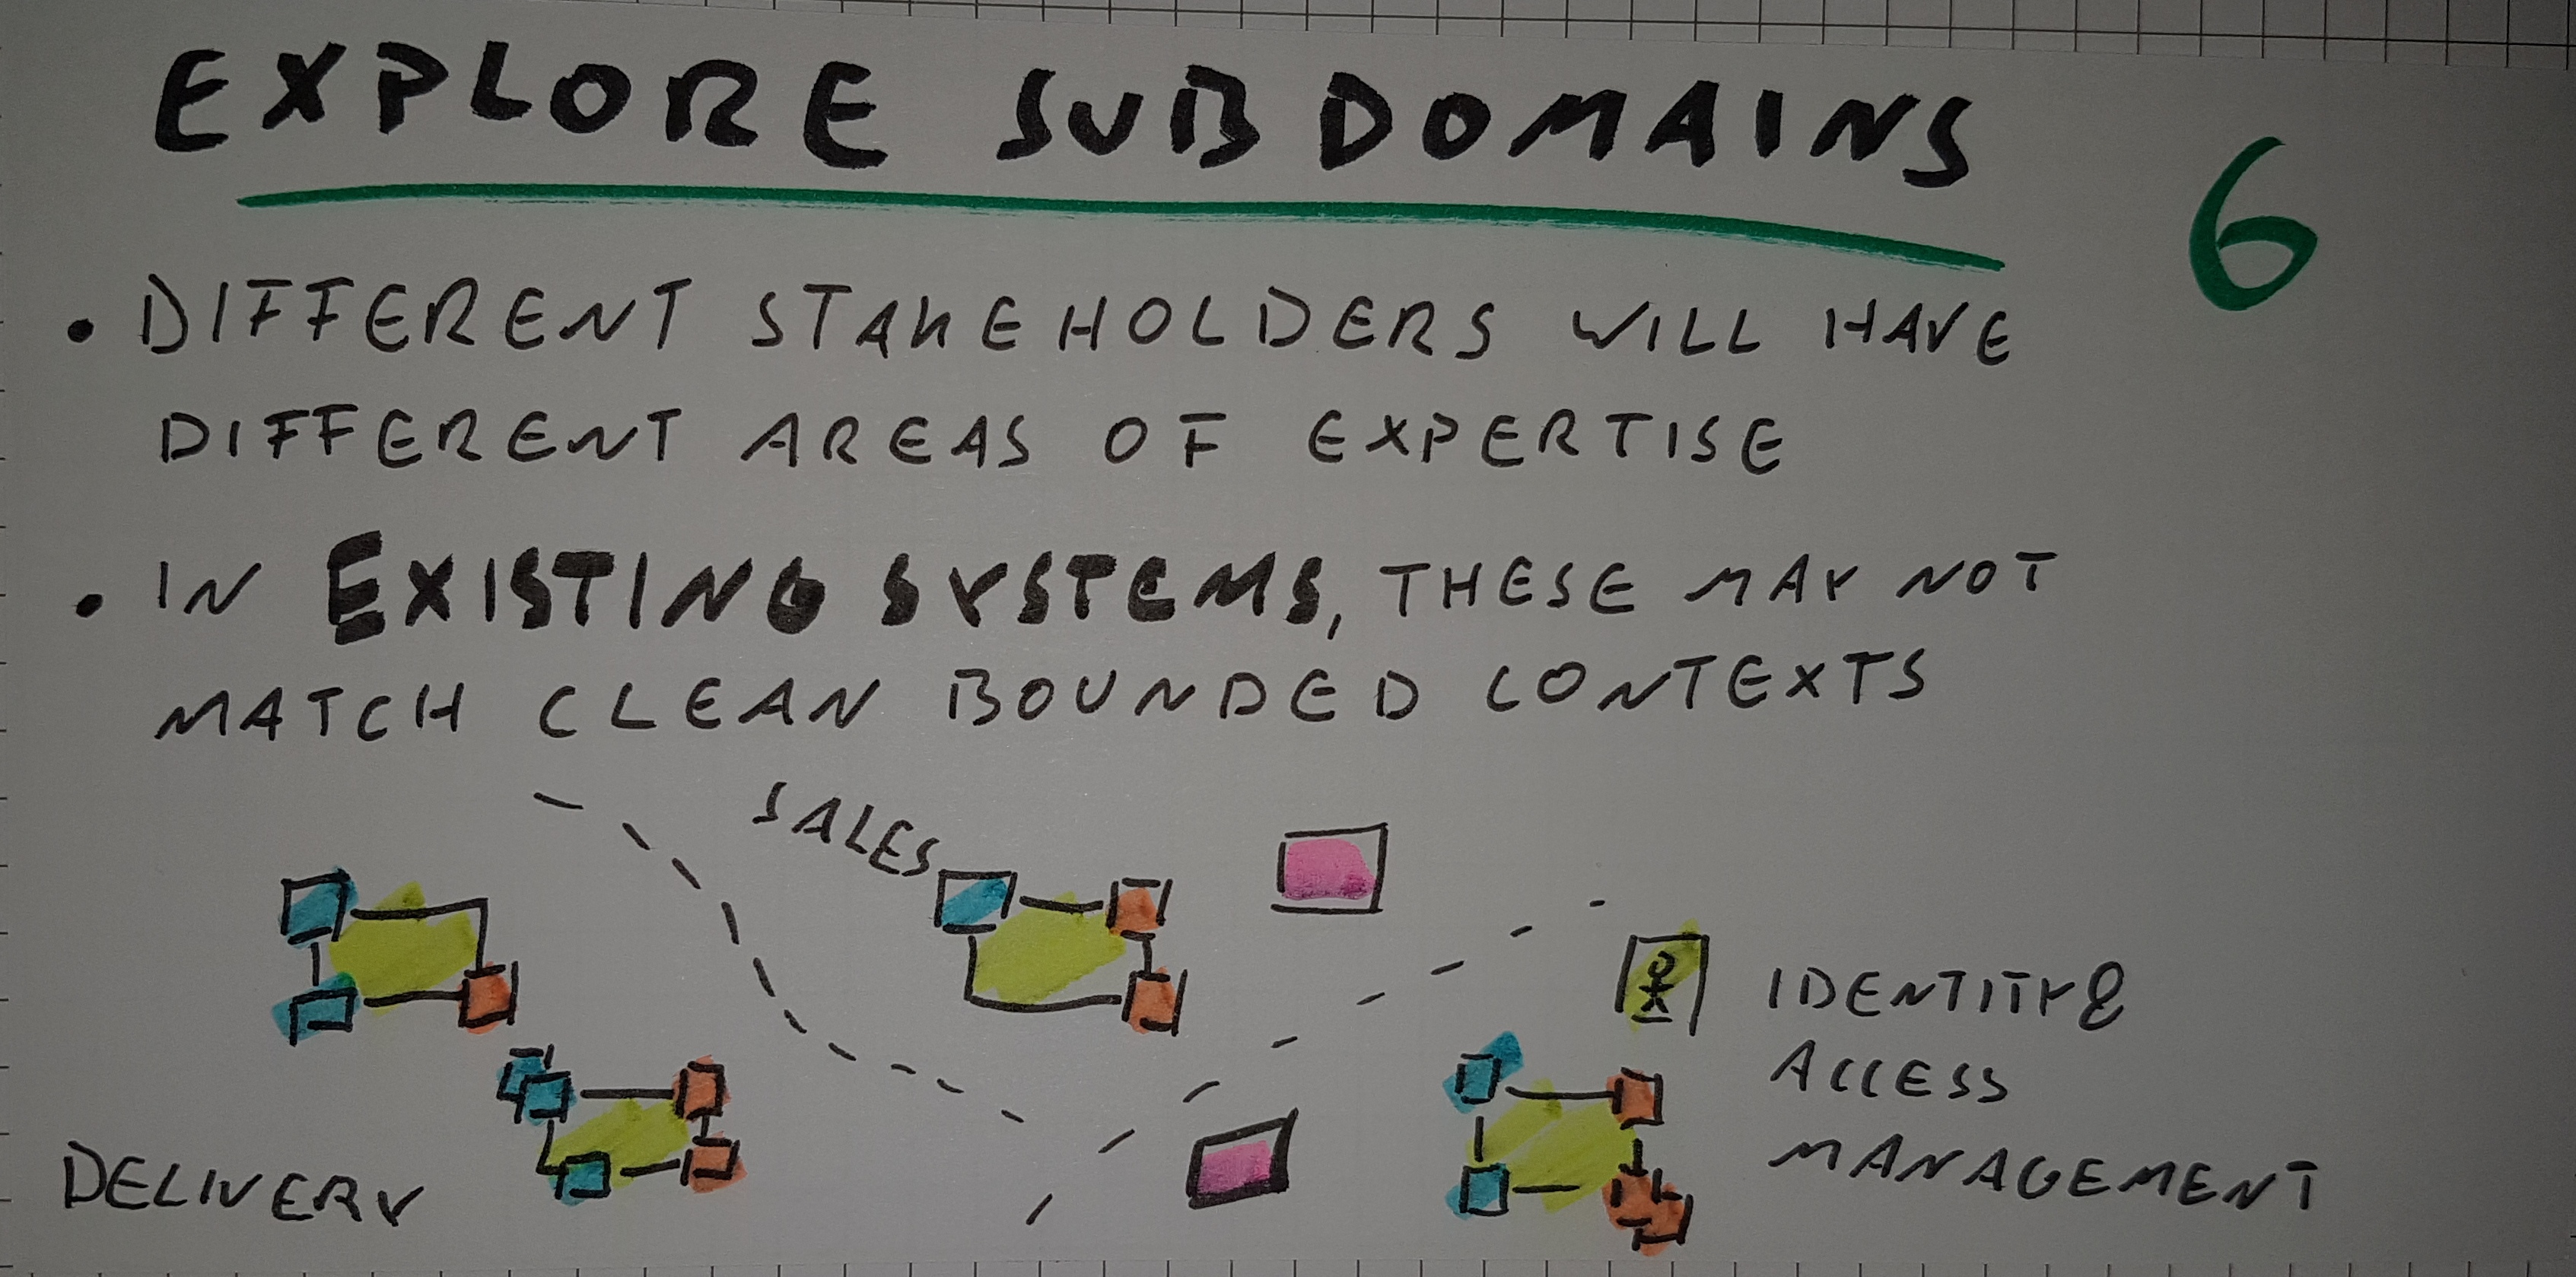 EXPLORE SUBDOMAINS
6
• DIFFERENT STAKEHOLDERS WILL HAVE
DIFFERENT AREAS OF EXPERTISE
• IN EXISTING SYSTEMS, THESE MAY NOT
MATCH CLEAN BOUNDED CONTEXTS
SALES
IDENTITY &
ACCESS
MANAGEMENT
DELIVERY